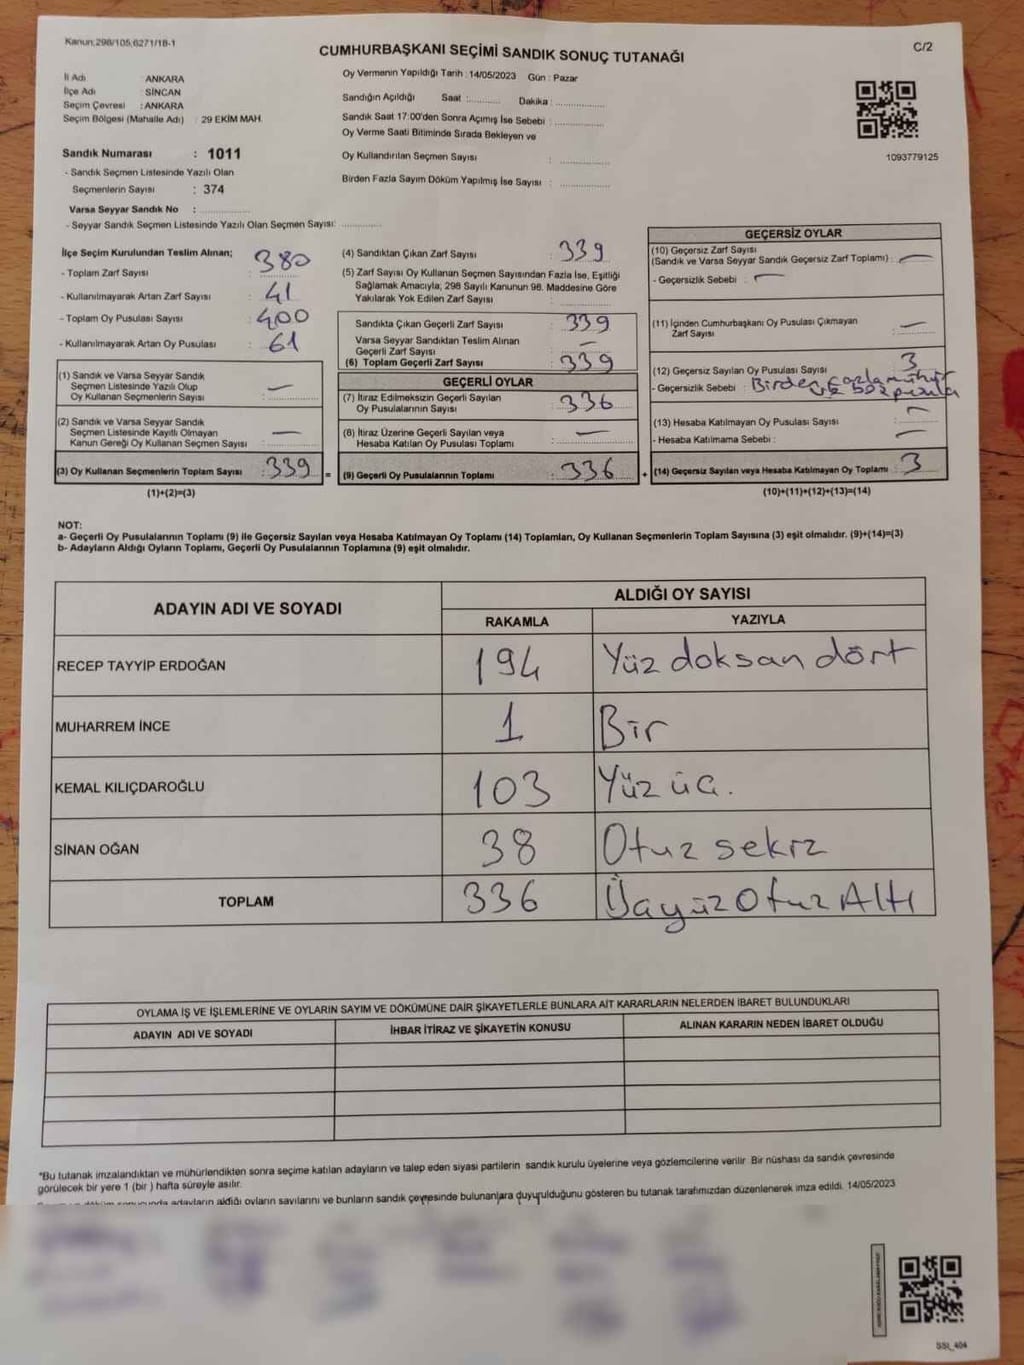 Kanun:298/105,6271/18-1
C/2
CUMHURBAŞKANI SEÇİMİ SANDIK SONUÇ TUTANAĞI
İl Adı : ANKARA
İlçe Adı : SİNCAN
Seçim Çevresi : ANKARA
Seçim Bölgesi (Mahalle Adı) : 29 EKİM MAH.
Sandık Numarası : 1011
- Sandık Seçmen Listesinde Yazılı Olan
Seçmenlerin Sayısı : 374
Varsa Seyyar Sandık No :
- Seyyar Sandık Seçmen Listesinde Yazılı Olan Seçmen Sayısı:
Oy Vermenin Yapıldığı Tarih : 14/05/2023 Gün : Pazar
Sandığın Açıldığı Saat : Dakika :
Sandık Saat 17:00'den Sonra Açımış İse Sebebi :
Oy Verme Saati Bitiminde Sırada Bekleyen ve
Oy Kullandırılan Seçmen Sayısı :
Birden Fazla Sayım Döküm Yapılmış İse Sayısı :
1093779125
İlçe Seçim Kurulundan Teslim Alınan;
- Toplam Zarf Sayısı 380
- Kullanılmayarak Artan Zarf Sayısı 41
- Toplam Oy Pusulası Sayısı 400
- Kullanılmayarak Artan Oy Pusulası 61
(1) Sandık ve Varsa Seyyar Sandık
Seçmen Listesinde Yazılı Olup
Oy Kullanan Seçmenlerin Sayısı : —
(2) Sandık ve Varsa Seyyar Sandık
Seçmen Listesinde Kayıtlı Olmayan
Kanun Gereği Oy Kullanan Seçmen Sayısı : —
(3) Oy Kullanan Seçmenlerin Toplam Sayısı : 339
(1)+(2)=(3)
(4) Sandıktan Çıkan Zarf Sayısı : 339
(5) Zarf Sayısı Oy Kullanan Seçmen Sayısından Fazla İse, Eşitliği
Sağlamak Amacıyla; 298 Sayılı Kanunun 98. Maddesine Göre
Yakılarak Yok Edilen Zarf Sayısı :
Sandıkta Çıkan Geçerli Zarf Sayısı : 339
Varsa Seyyar Sandıktan Teslim Alınan
Geçerli Zarf Sayısı : —
(6) Toplam Geçerli Zarf Sayısı : 339
GEÇERLİ OYLAR
(7) İtiraz Edilmeksizin Geçerli Sayılan
Oy Pusulalarının Sayısı : 336
(8) İtiraz Üzerine Geçerli Sayılan veya
Hesaba Katılan Oy Pusulası Toplamı : —
(9) Geçerli Oy Pusulalarının Toplamı : 336
GEÇERSİZ OYLAR
(10) Geçersiz Zarf Sayısı
(Sandık ve Varsa Seyyar Sandık Geçersiz Zarf Toplamı) : —
- Geçersizlik Sebebi : —
(11) İçinden Cumhurbaşkanı Oy Pusulası Çıkmayan
Zarf Sayısı : —
(12) Geçersiz Sayılan Oy Pusulası Sayısı : 3
- Geçersizlik Sebebi : Birden fazla mühür
pusula
(13) Hesaba Katılmayan Oy Pusulası Sayısı : —
- Hesaba Katılmama Sebebi : —
(14) Geçersiz Sayılan veya Hesaba Katılmayan Oy Toplamı : 3
(10)+(11)+(12)+(13)=(14)
NOT:
a- Geçerli Oy Pusulalarının Toplamı (9) ile Geçersiz Sayılan veya Hesaba Katılmayan Oy Toplamı (14) Toplamları, Oy Kullanan Seçmenlerin Toplam Sayısına (3) eşit olmalıdır. (9)+(14)=(3)
b- Adayların Aldığı Oyların Toplamı, Geçerli Oy Pusulalarının Toplamına (9) eşit olmalıdır.
ADAYIN ADI VE SOYADI ALDIĞI OY SAYISI
RAKAMLA YAZIYLA
RECEP TAYYİP ERDOĞAN 194 Yüz doksan dört
MUHARREM İNCE 1 Bir
KEMAL KILIÇDAROĞLU 103 Yüz üç.
SİNAN OĞAN 38 Otuz sekiz
TOPLAM 336 Üçyüz Otuz Altı
OYLAMA İŞ VE İŞLEMLERİNE VE OYLARIN SAYIM VE DÖKÜMÜNE DAİR ŞİKAYETLERLE BUNLARA AİT KARARLARIN NELERDEN İBARET BULUNDUKLARI
ADAYIN ADI VE SOYADI İHBAR İTİRAZ VE ŞİKAYETİN KONUSU ALINAN KARARIN NEDEN İBARET OLDUĞU
"Bu tutanak imzalandıktan ve mühürlendikten sonra seçime katılan adayların ve talep eden siyasi partilerin sandık kurulu üyelerine veya gözlemcilerine verilir. Bir nüshası da sandık çevresinde
görülecek bir yere 1 (bir ) hafta süreyle asılır.
adayların aldığı oyların sayılarını ve bunların sandık çevresinde bulunanlara duyurulduğunu gösteren bu tutanak tarafımızdan düzenlenerek imza edildi. 14/05/2023
SSI_404